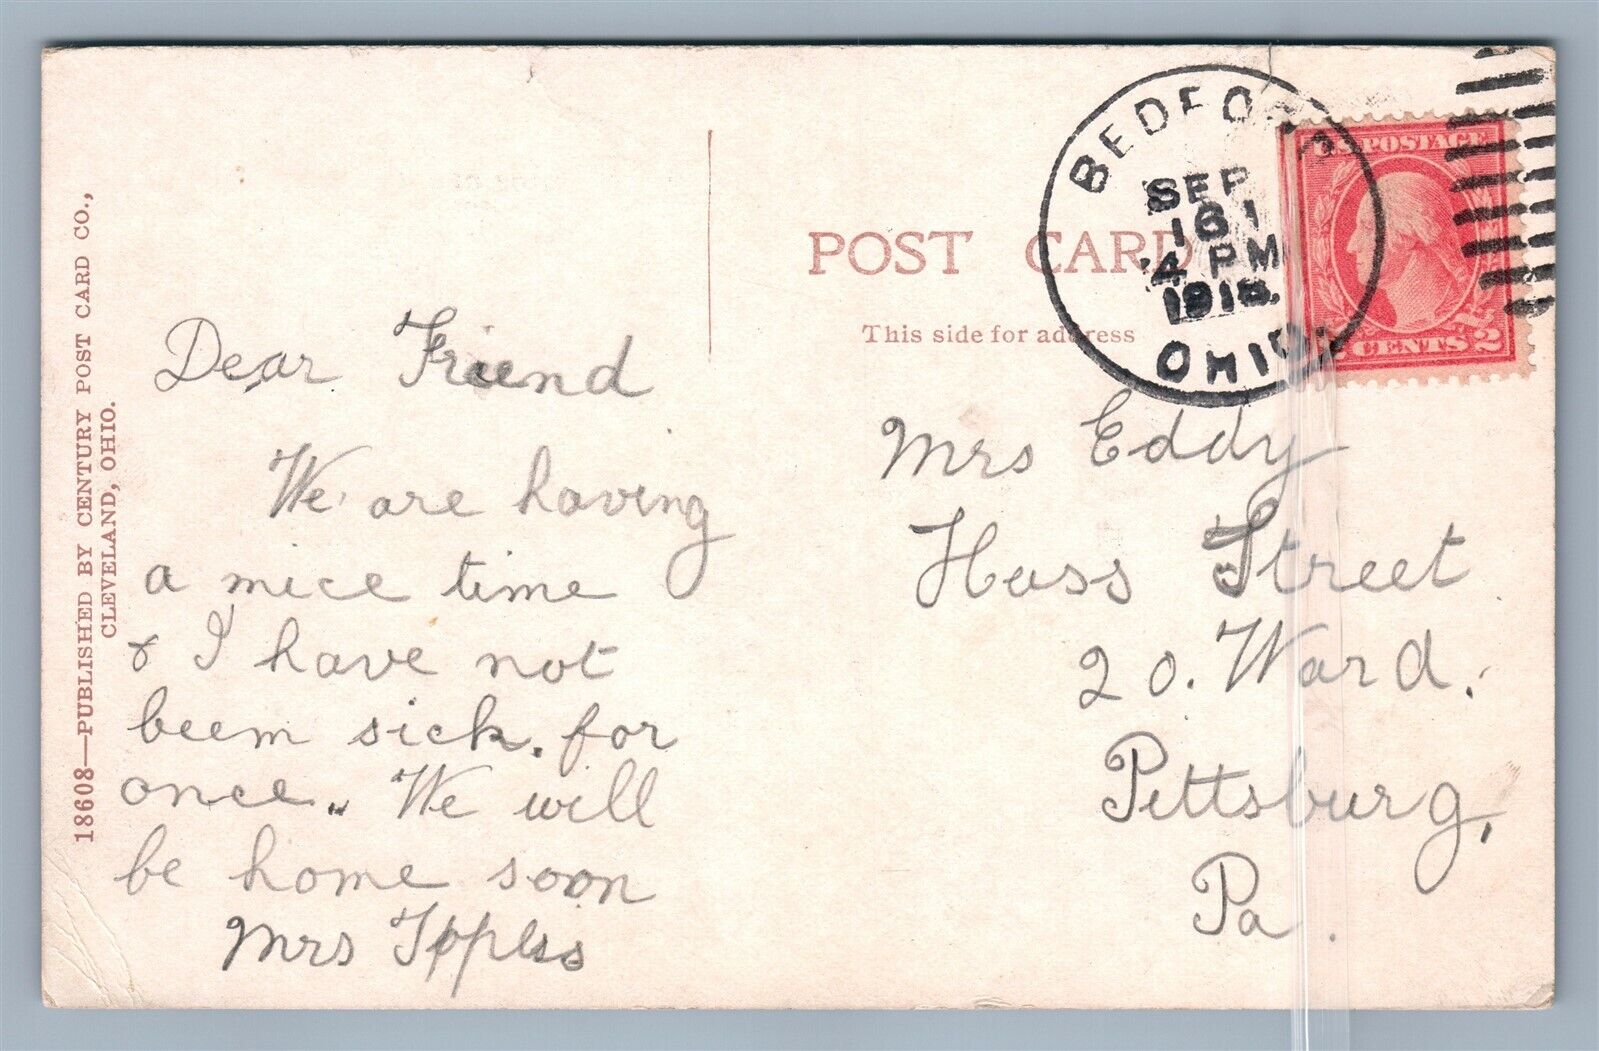 18608—PUBLISHED BY CENTURY POST CARD CO.,
CLEVELAND, OHIO.
POST CARD
This side for address
BEDFORD
SEP
16
4 PM
OHIO.
U.S. POSTAGE
2 CENTS 2
Dear Friend
We are having
a mice time
& I have not
beem sick. for
once.. We will
be home soon
Mrs
Mrs Eddy
Hass Street
20. Ward.
Pittsburg,
Pa.